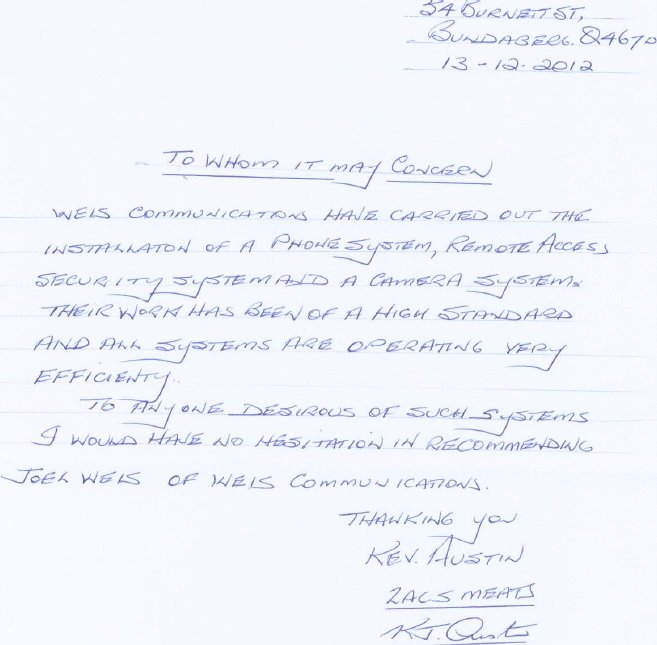 34 BURNETT ST,
BUNDABERG. Q4670
13-12-2012
TO WHOM IT MAY CONCERN
WEIS COMMUNICATIONS HAVE CARRIED OUT THE
INSTALLATON OF A PHONE SYSTEM, REMOTE ACCESS
SECURITY SYSTEM AND A CAMERA SYSTEM.
THEIR WORK HAS BEEN OF A HIGH STANDARD
AND ALL SYSTEMS ARE OPERATING VERY
EFFICIENTY.
TO ANYONE DESIROUS OF SUCH SYSTEMS
I WOULD HAVE NO HESITATION IN RECOMMENDING
JOEL WEIS OF WEIS COMMUNICATIONS.
THANKING YOU
KEV. AUSTIN
ZACS MEATS
K.J. Austin